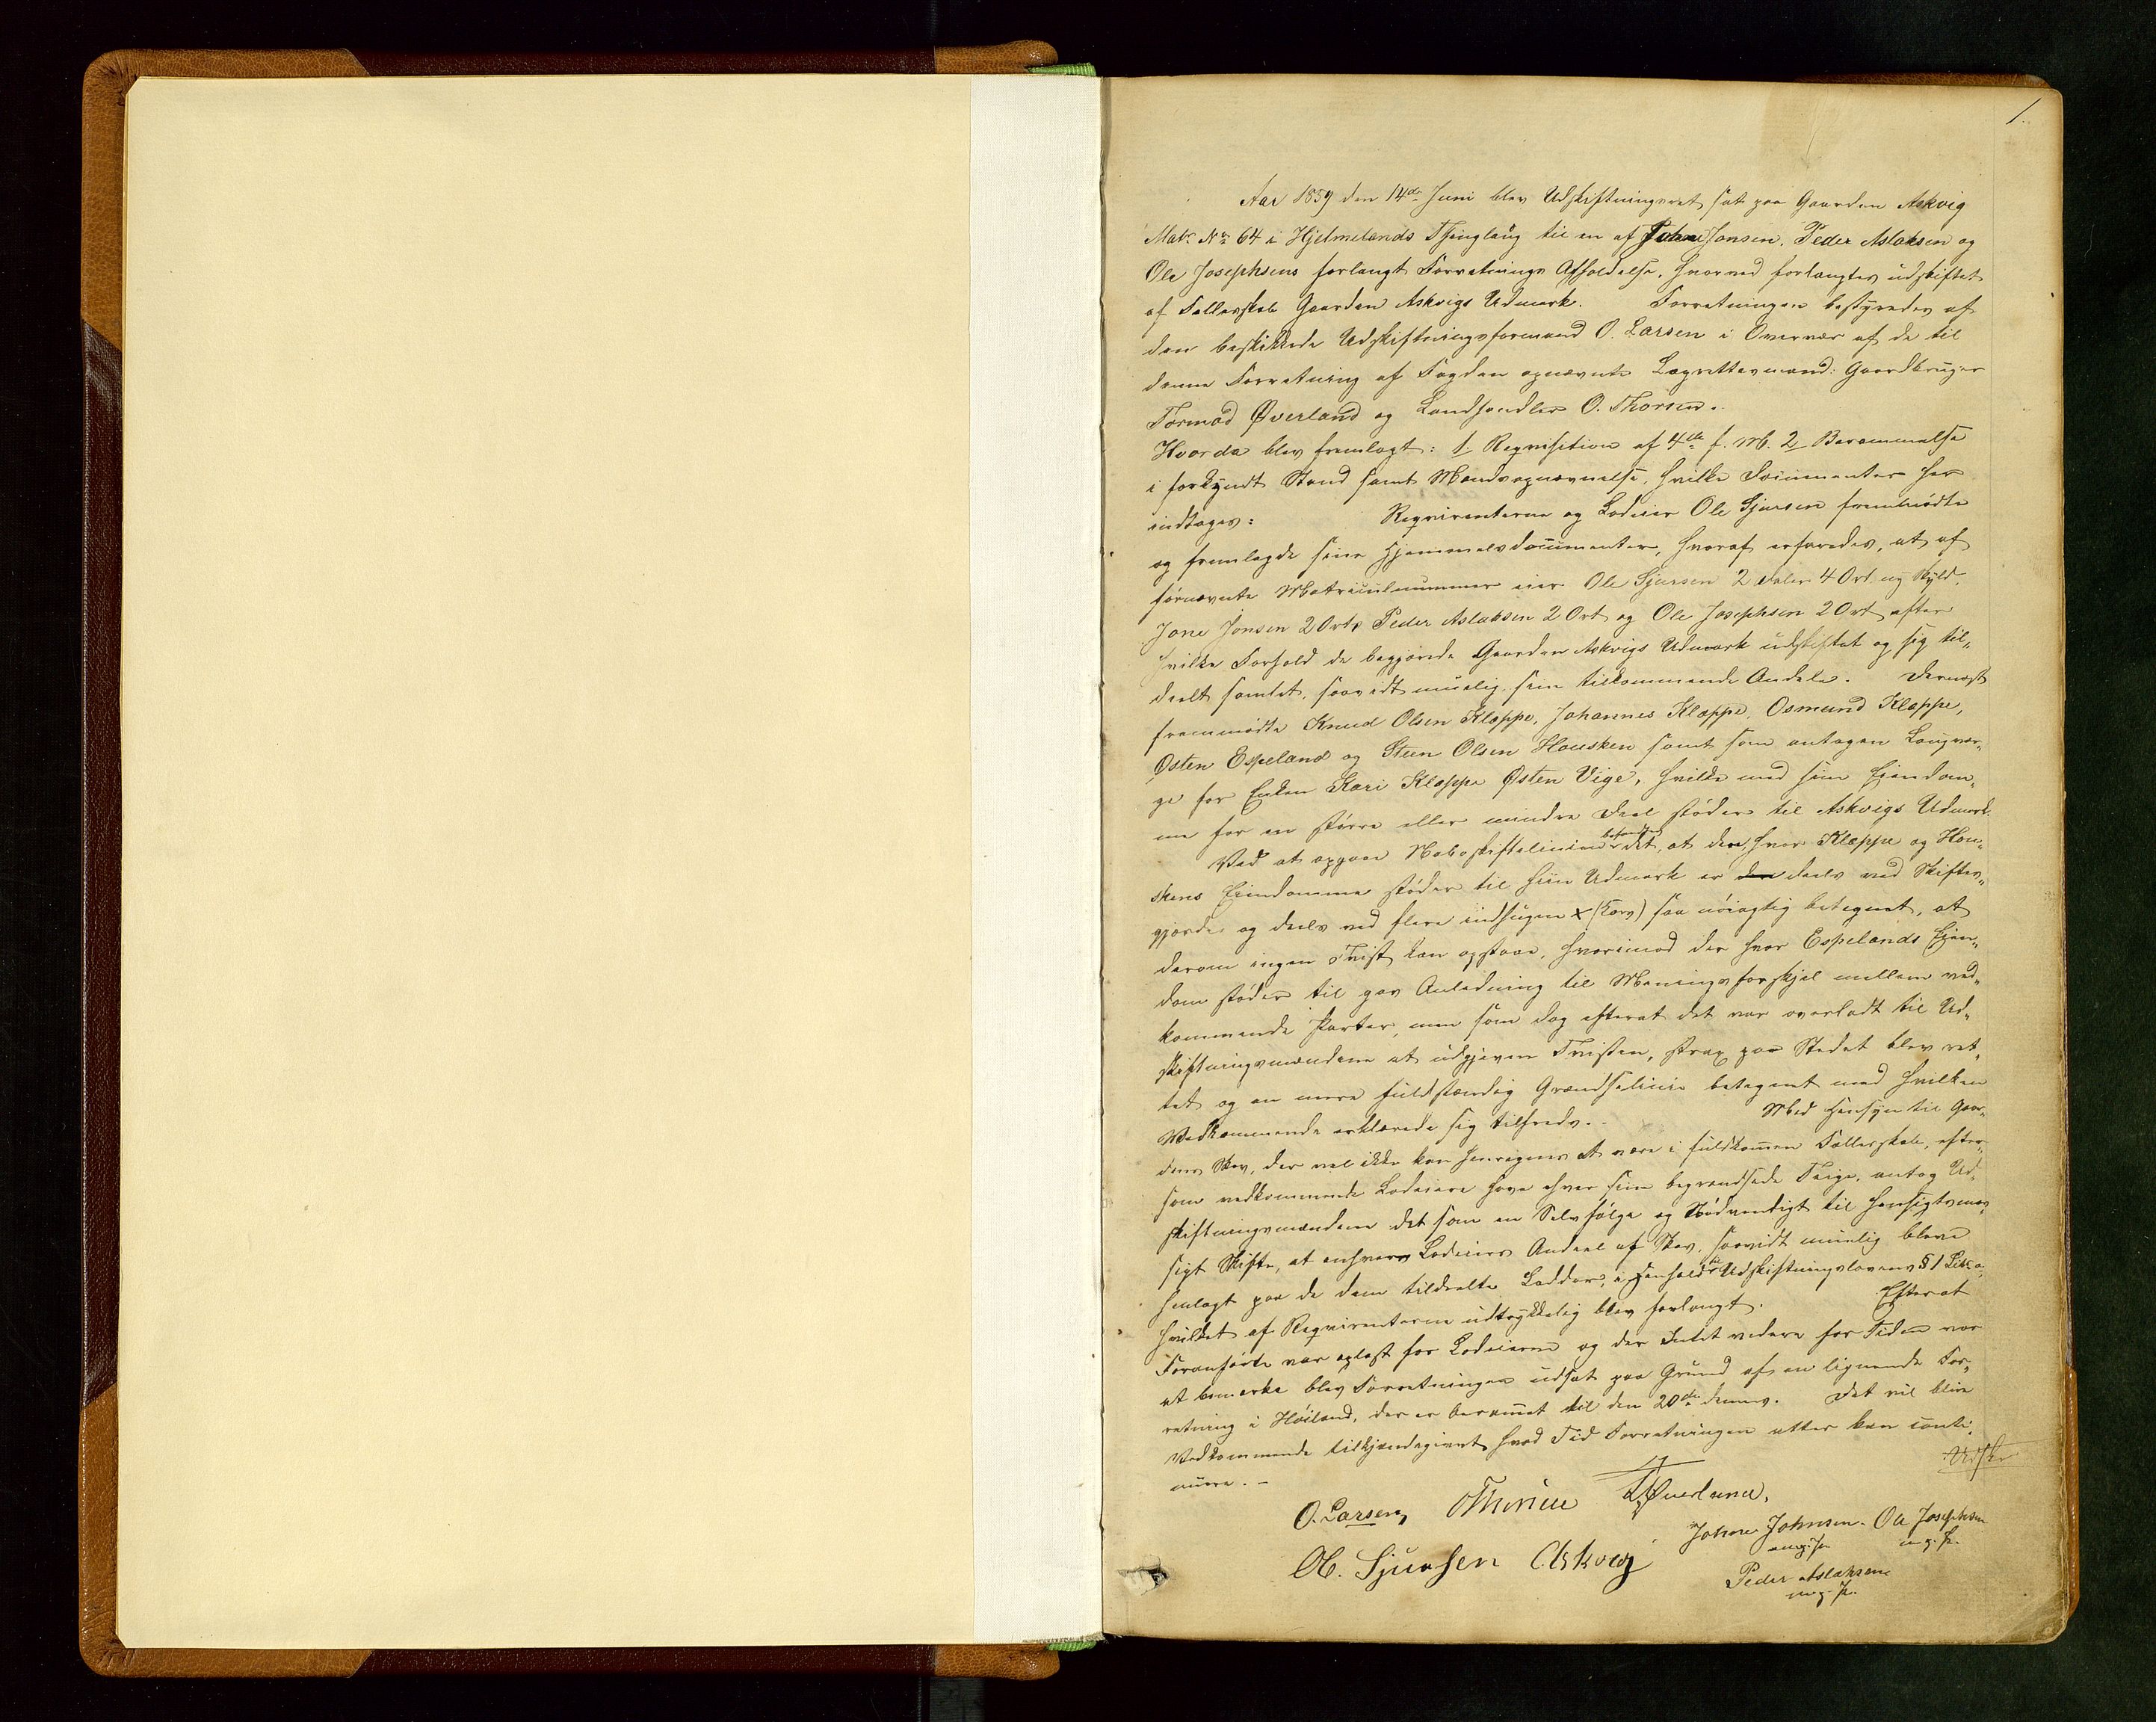 1.
Aar 1859 den 14de Juni blev Udskiftningsret sat paa Gaarden Askvig
Matr. No 64 i Hjelmelands Thinglaug til en af Johne Jonsen, Peder Aslaksen og
Ole Josephsens forlangt Forretnings Afholdelse, hvorved forlangtes udskiftet
af Fællesskab Gaarden Askvigs Udmark. Forretningen bestyredes af
den beskikkede Udskiftningsformand O. Larsen i Overvær af de til
denne Forretning af Fogden opnævnte Lagrettesmænd: Gaardbruger
Tormod Øverland og Landhandler O. Thorsen.
Hvorda blev fremlagt: 1 Reqvisition af 4de f. M. 2 Berammelse
i forkyndt Stand samt Mandsopnævnelse, hvilke Documenter her
indtages: Reqvirenterne og Lodeier Ole Sjursen fremmødte
og fremlagde sine Hjemmelsdocumenter, hvoraf erfaredes, at af
førnævnte Matriculnummer eier Ole Sjursen 2 Daler 4 Ort ny Skyld,
Jone Jonsen 2 Ort, Peder Aslaksen 2 Ort og Ole Josephsen 2 Ort efter
hvilke Forhold de begjærede Gaarden Askvigs Udmark udskiftet og sig til-
deelt samlet, saavidt muelig sine tilkommende Andele. Dernæst
fremmødte Knud Olsen Kleppe, Johannes Kleppe, Osmund Kleppe,
Østen Espeland og Steen Olsen Housken samt som antagen Laugvær-
ge for Enken Kari Kleppe Østen Vige, hvilke med sine Eiendom-
me for en større eller mindre Deel støder til Askvigs Udmark.
Ved at opgaae Naboskiftelinien befandtes det, at den, hvor Kleppe og Hou-
skens Eiendomme støder til hiin Udmark er deels ved Skiftes-
gjærde og deels ved flere indhugne x (Kors) saa nøiagtig betegnet, at
derom ingen Tvist kan opstaae, hvorimod der hvor Espelands Eien-
dom støder til gav Anledning til Meningsforskjel mellem ved-
kommende Parter, men som dog efterat det var overladt til Ud-
skiftningsmændene at udgjevne Tvisten, strax paa Stedet blev ret-
tet og en mere fuldstændig Grændselinie betegnet med hvilken
Vedkommende erklærede sig tilfreds. Med Hensyn til Gaar-
dens Skov, der vel ikke kan henregnes at være i fuldkommen Fællesskab, efter-
som vedkommende Lodeiere have hver sine begrændsede Teige, antog Ud-
skiftningsmændene det som en Selvfølge og Nødvendigt til hensigtsmæs-
sigt Skifte, at enhver Lodeiers Andeel af Skov, saavidt muelig bleve
henlagt paa de dem tildeelte Lodder, i Henhold til Udskiftningslovens § 1 Litr. a,
hvilket af Reqvirenterne udtrykkelig blev forlangt. Efterat
Foranførte var oplæst for Lodeierne og der Intet videre for Tiden var
at bemærke blev Forretningen udsat paa Grund af en lignende For-
retning i Høiland, der er berammet til den 20de dennes. Det vil blive
Vedkommende tilkjendegivet hvad Tid Forretningen atter kan conti-
nuere. -
O. Larsen, OThorsen TTØverland,
Ol. Sjursen Askvig Johne Johnsen. Ole Josephsen
m. p. P. m. p. P.
Peder Aslaksen
m. p. P.